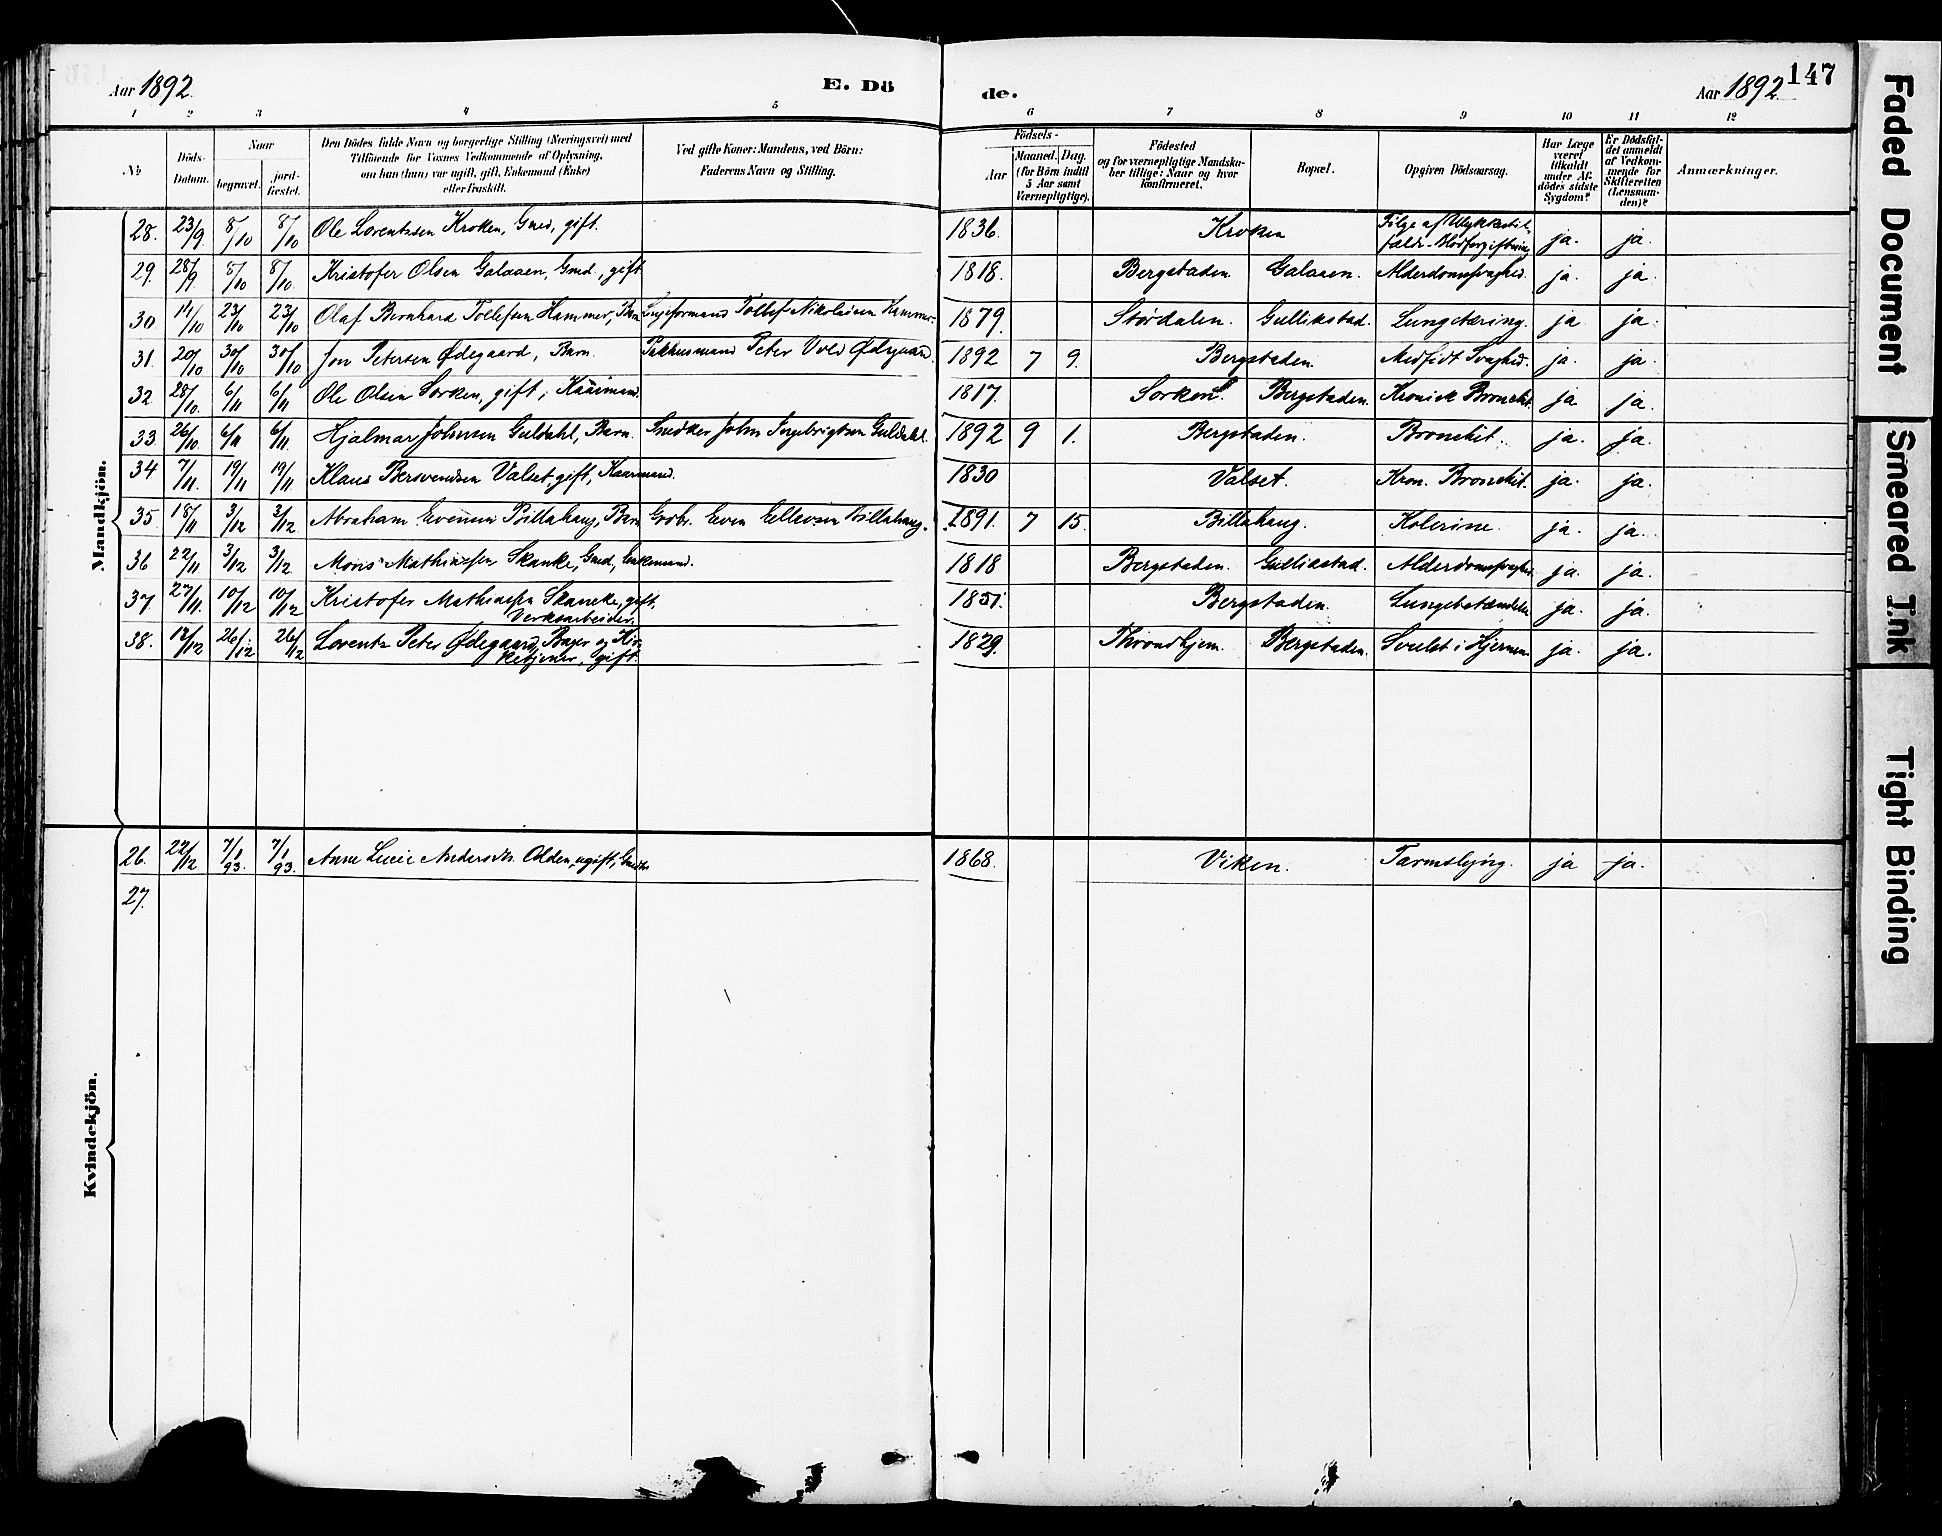 Aar 1892.
E. Döde.
Aar 1892.
147
1 2 3 4 5 6 7 8 9 10 11 12
№
Döds-Datum.
Naar
begravet.
jord-fæstet.
Den Dödes fulde Navn og borgerlige Stilling (Næringsvei) med
Tilföiende for Voxnes Vedkommende af Oplysning,
om han (hun) var ugift, gift, Enkemand (Enke)
eller fraskilt.
Ved gifte Koner: Mandens, ved Börn:
Faderens Navn og Stilling.
Födsels-
Aar
Maaned. Dag.
(for Börn indtil
5 Aar samt
Værnepligtige).
Födested
og for værnepligtige Mandska-
ber tillige: Naar og hvor
konfirmeret.
Bopæl.
Opgiven Dödsaarsag.
Har Læge
været
tilkaldt
under Af-
dödes sidste
Sygdom?
Er Dödsfal-
det anmeldt
af Vedkom-
mende for
Skifteretten
(Lensman-
den)?
Anmærkninger.
Mandkjön.
28. 23/9 8/10 8/10 Ole Lorentzsen Kroken, Gmd, gift. 1836. Kroken Følge af Ulykkestil-
fælde - Blodforgiftning ja. ja.
29. 28/9 8/10 8/10 Kristofer Olsen Galaaen, Gmd., gift 1818. Bergstaden. Galaaen. Alderdomssvaghed. ja. ja.
30. 14/10 23/10 23/10 Olaf Bernhard Tollefsen Hammer, Barn Tollef Nikolaisen Hammer. 1879. Stördalen. Gullikstad. Lungetæring. ja ja.
31. 20/10 30/10 30/10 Jon Petersen Ødegaard, Barn. Pakhusmand Peter Vold Ødegaard. 1892 7 9. Bergstaden. Medfødt Svaghed. ja. ja.
32. 28/10. 6/11 6/11 Ole Olsen Sorken, gift, Kaarmand. 1817. Sorken. Bergstaden. Kronisk Bronchit. ja ja.
33. 26/10 6/11 6/11. Hjalmar Johnsen Guldahl, Barn. Snedker John Ingebrigtsen Guldahl. 1892 9 1. Bergstaden. Bronchit. ja. ja.
34 7/11. 19/11 19/11 Klaus Bersvendsen Valset, gift, Kaarmand. 1830 Valset. Kron. Bronchit. ja. ja.
35. 18/11 3/12 3/12 Abraham Evensen Billahaug, Barn Grbr. Even Ellevsen Billahaug. 1891. 7 15. Billahaug. Kolerine. ja. ja.
36 22/11 3/12 3/12 Mons Mathiassen Skanke, Gmd, Enkemand. 1818 Bergstaden. Gullikstad. Alderdomssvaghed ja. ja.
37. 27/11. 10/12 10/12 Kristofer Mathiassen Skancke, gift.
Verksarbeider. 1851. Bergstaden. Lungebetændelse ja. ja.
38. 12/12 26/12 26/12 Lorentz Peter Ødegaard, Bager og Kir-
ketjener, gift. 1829. Throndhjem. Bergstaden. Svulst i Hjernen. ja. ja.
Kvindekjön.
26. 22/12 7/1 93. 7/1 93. Anne Lucie Andersdtr. Odden, ugift, Gmdtr. 1868. Viken. Tarmslyng. ja ja.
27.
Faded Document
Smeared Ink
Tight Binding